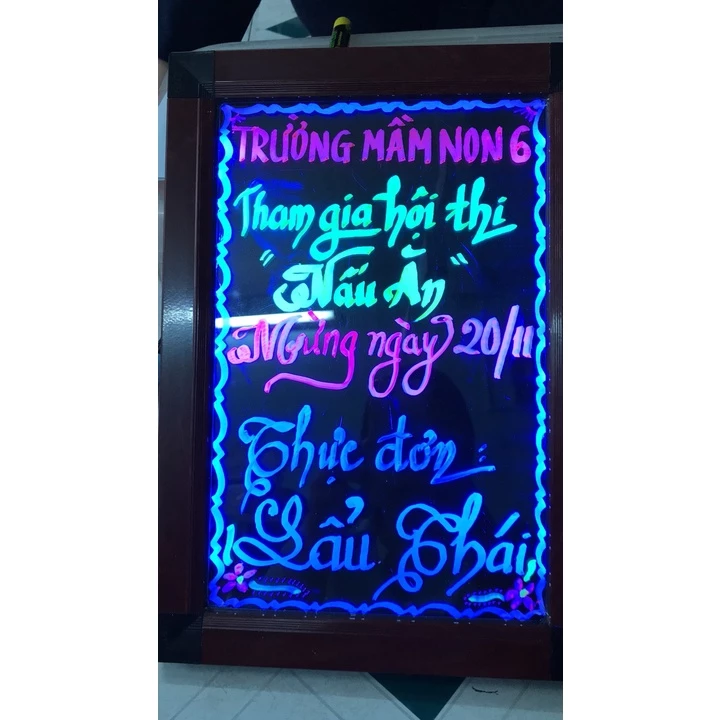 TRƯỜNG MẦM NON 6
Tham gia hội thi
"Nấu Ăn"
Mừng ngày 20/11
Thực đơn :
Lẩu Thái,